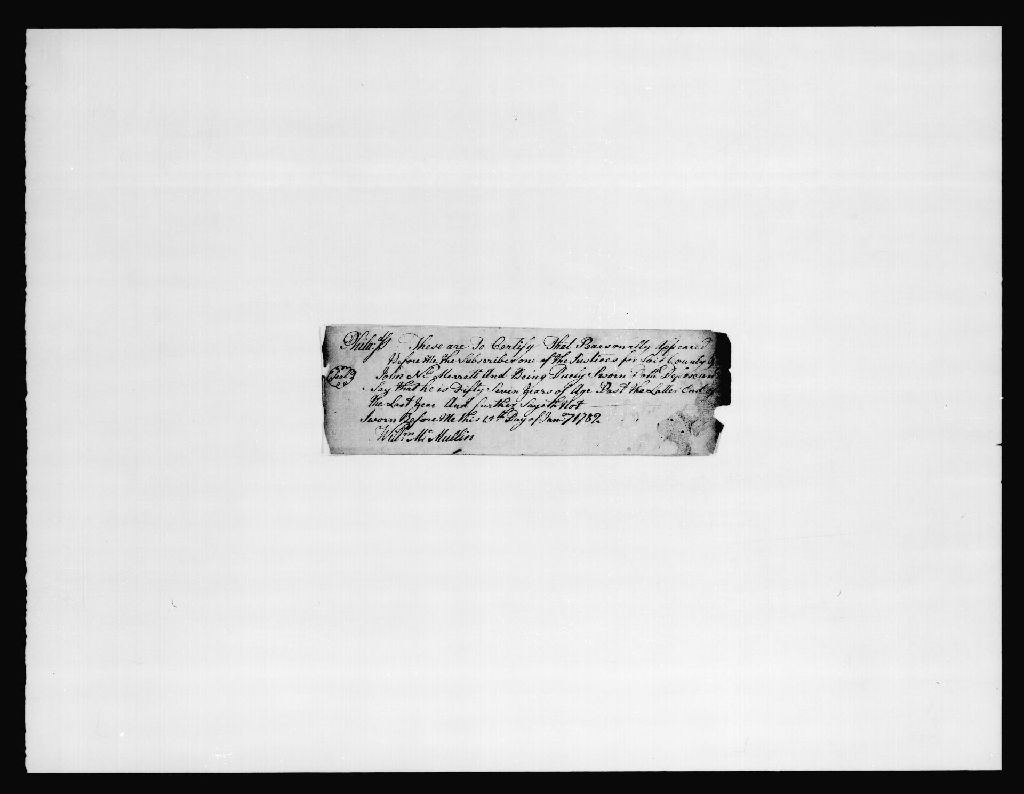 Philad^a ss These are To Certify That Parsonally Appeared
Before Me the Subscriber one of the Justices for Said County
John Mc Merrett And Being Duely Sworn Doth
Say that he is Difty Seven Years of Age Past the Latter End
the Last Year And further Sayeth Not
Sworn Before Me this 14th Day of Jany 1782
Will^m Mc Mullin
Seal